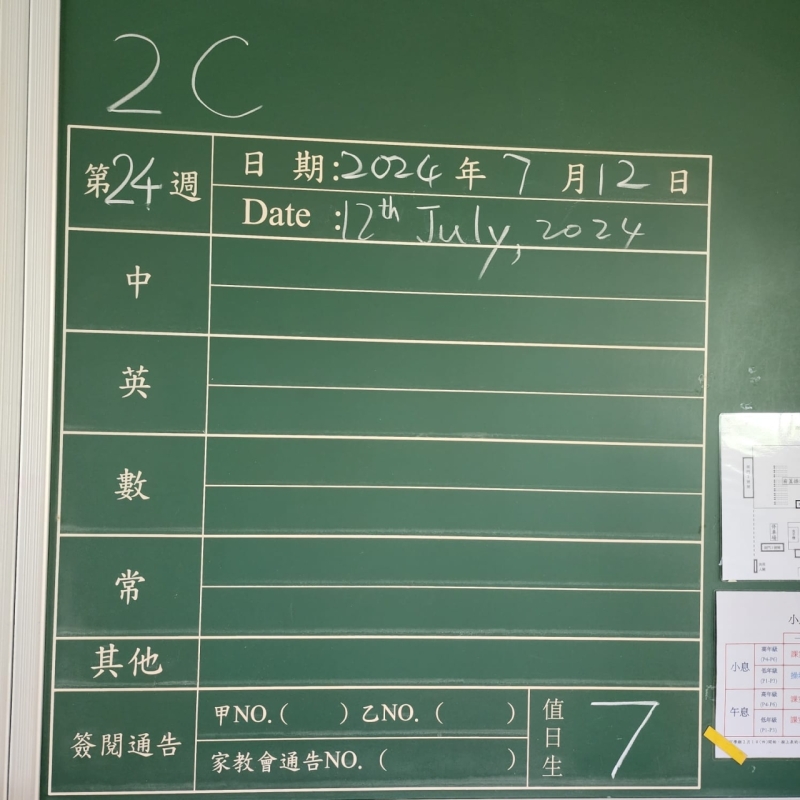 2C
第24週
日 期:2024年7月12日
Date :12th July, 2024
中
英
數
常
其他
簽閱通告
甲NO.( ) 乙NO. ( )
家教會通告NO. ( )
值日生
7
小息
午息